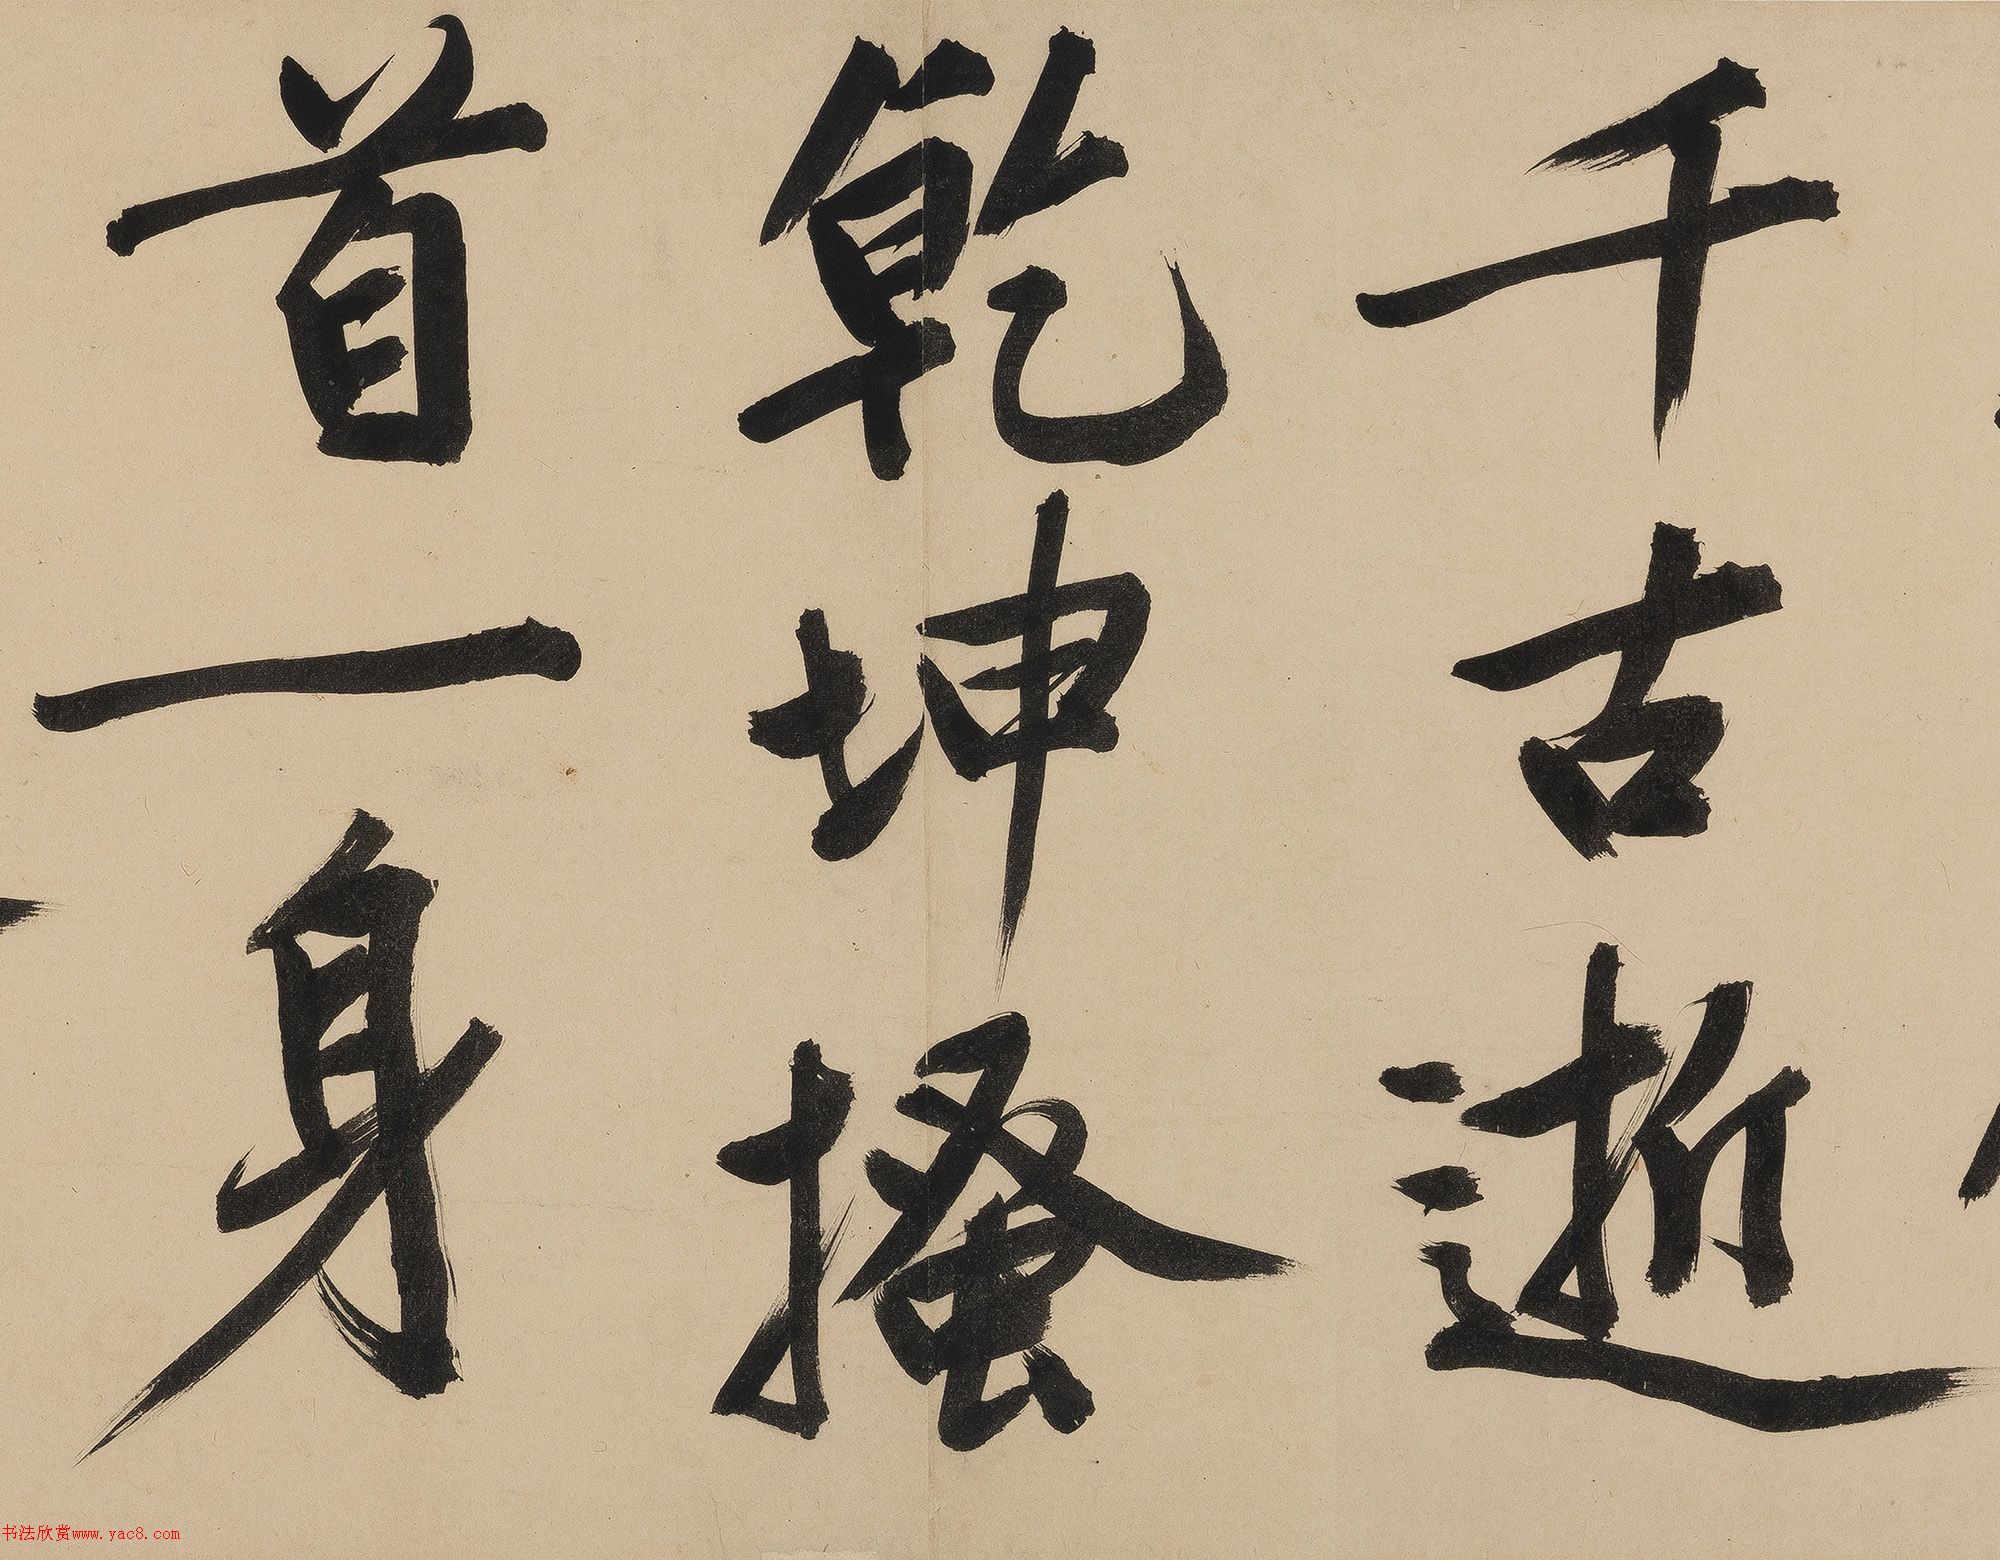 千古逝
乾坤搔
首一身
书法欣赏www.yac8.com